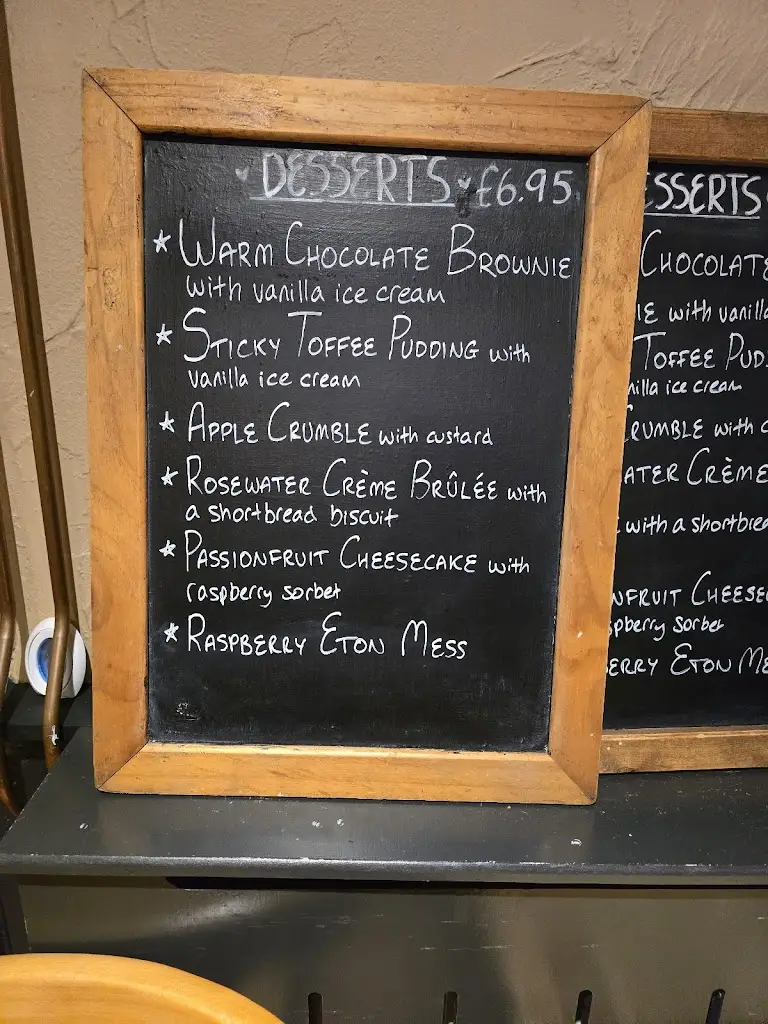 DESSERTS £6.95
WARM CHOCOLATE BROWNIE
with vanilla ice cream
STICKY TOFFEE PUDDING with
vanilla ice cream
APPLE CRUMBLE with custard
ROSEWATER CRÈME BRÛLÉE with
a shortbread biscuit
PASSIONFRUIT CHEESECAKE with
raspberry sorbet
RASPBERRY ETON MESS
ESSERTS
CHOCOLATE
IE with vanilla
TOFFEE PUD
nilla ice cream
CRUMBLE with c
ATER CRÈME
with a shortbrea
NFRUIT CHEESEC
spberry sorbet
BERRY ETON ME